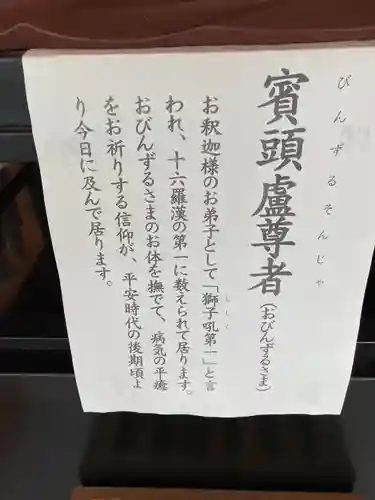 びんずるそんじゃ
賓頭盧尊者(おびんずるさま)
お釈迦様のお弟子として「獅子吼第一」と言
ししく
われ、十六羅漢の第一に数えられて居ります。
おびんずるさまのお体を撫でて、病気の平癒
をお祈りする信仰が、平安時代の後期頃よ
り今日に及んで居ります。